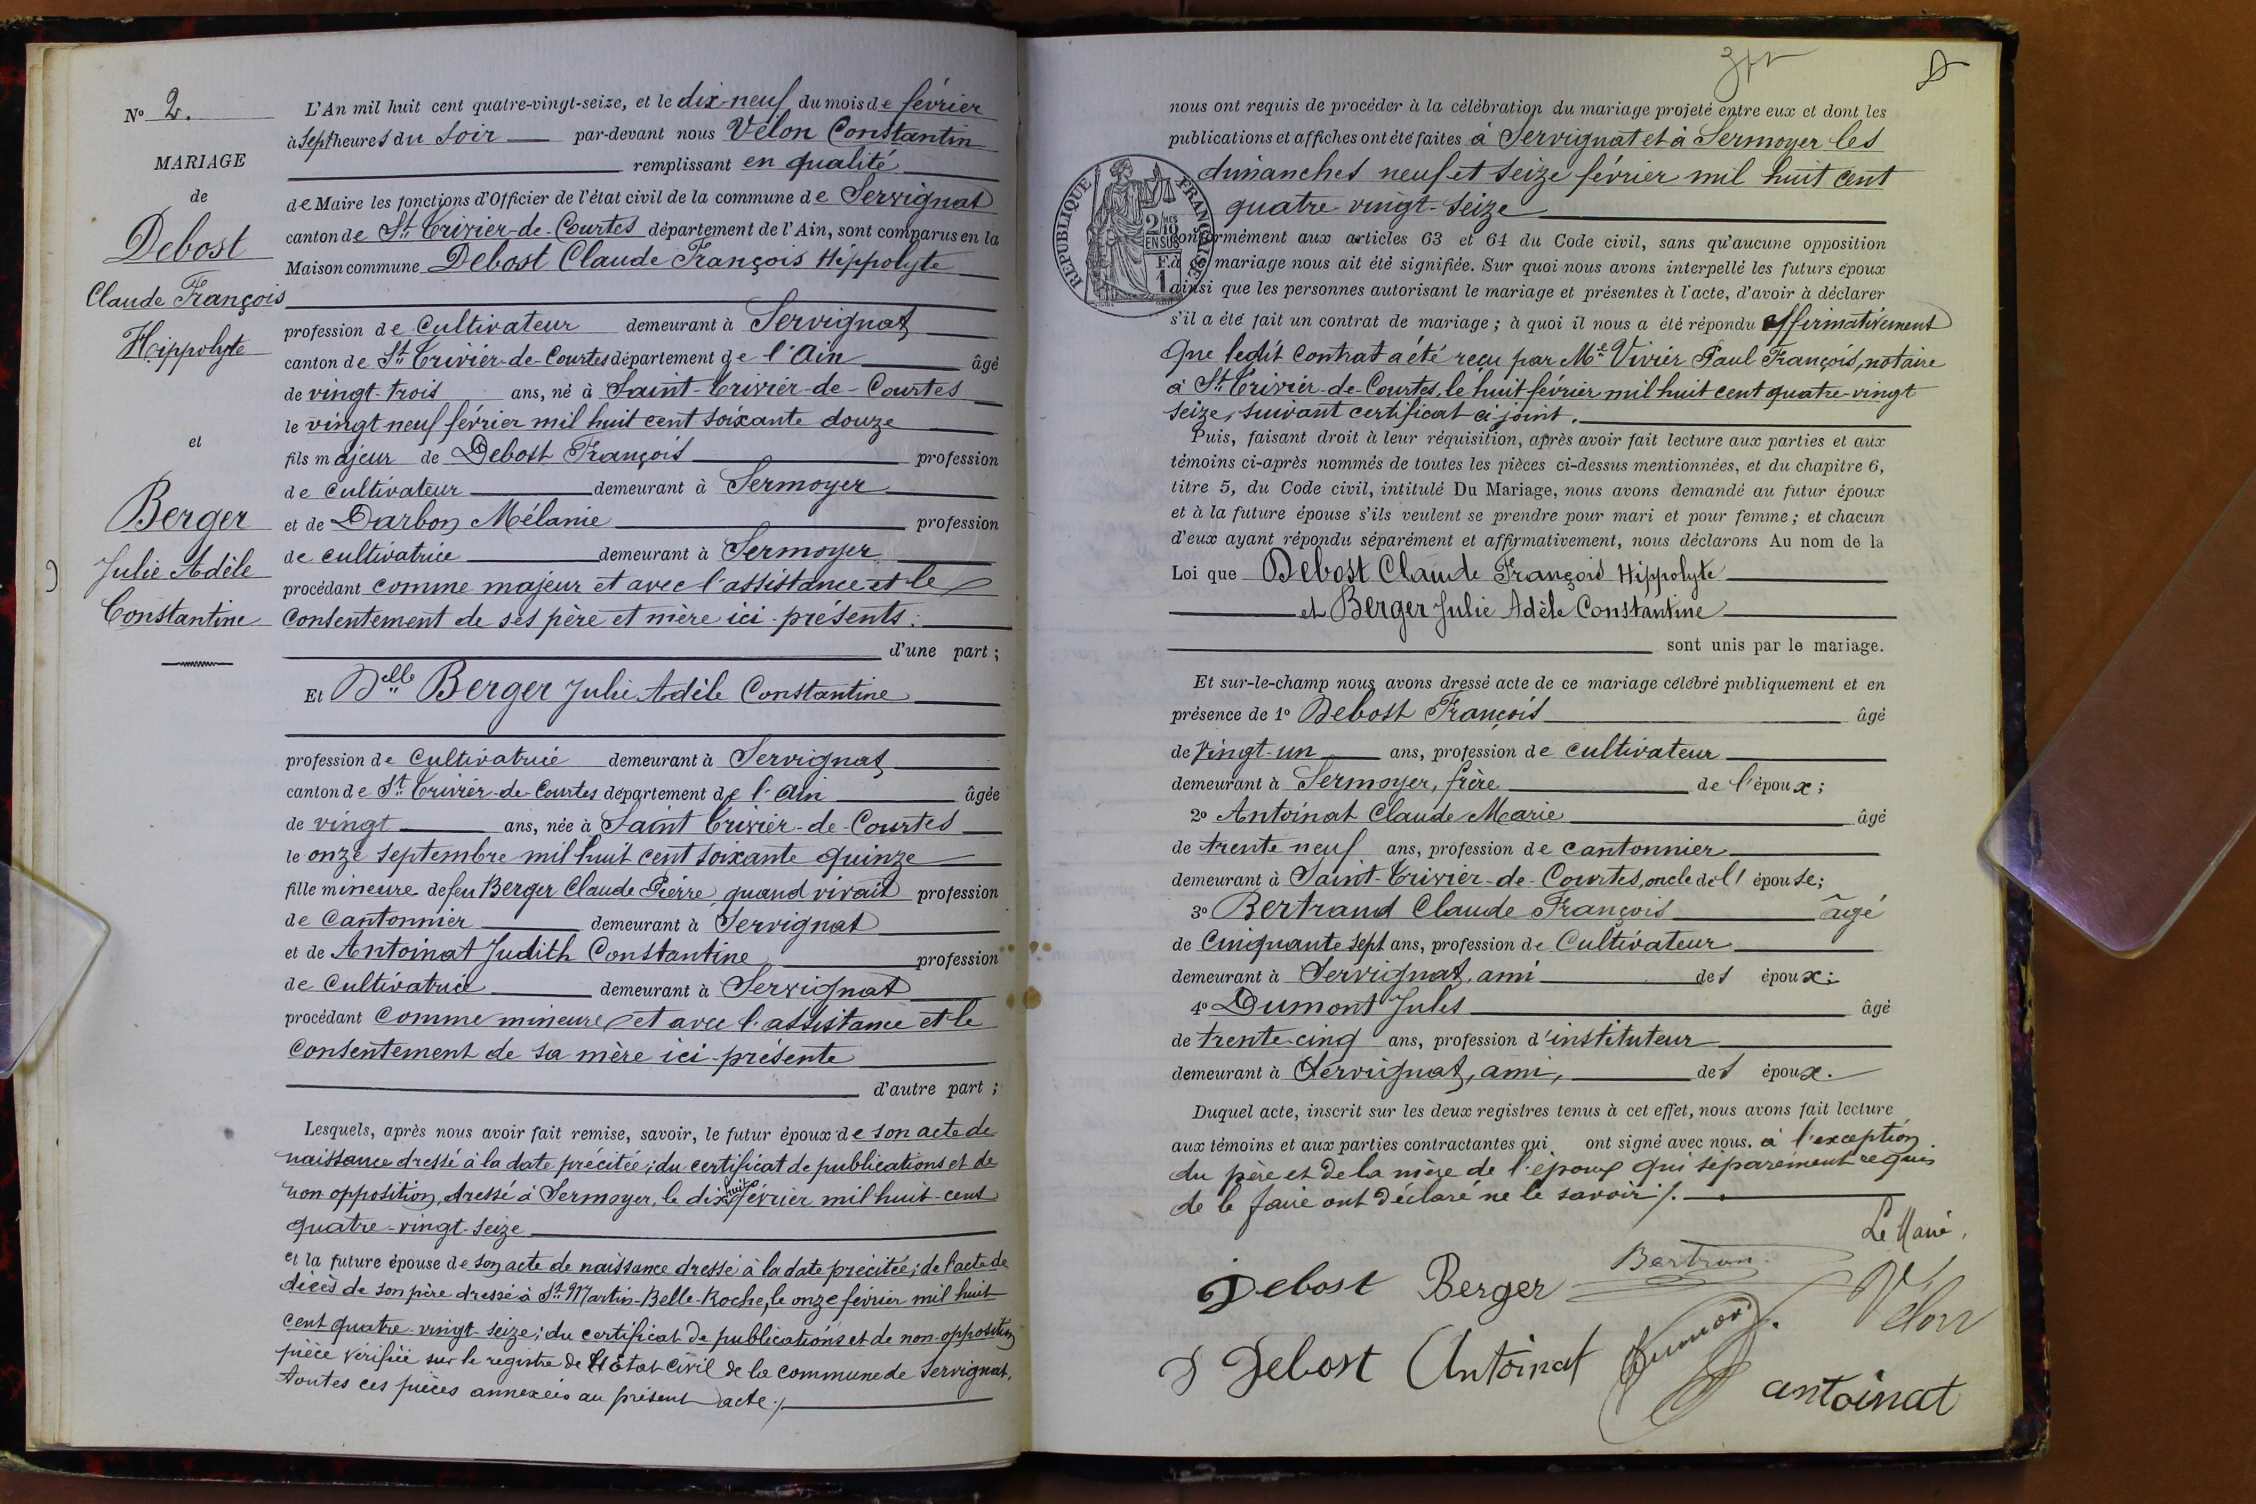 N° 2.
MARIAGE
de
Debost
Claude François
Hippolyte
et
Berger
Julie Adèle
Constantine
L'An mil huit cent quatre-vingt-seize, et le dix-neuf du mois de février
à Sept heures du Soir par-devant nous Vélon Constantin
remplissant en qualité
de Maire les fonctions d'Officier de l'état civil de la commune de Servignat
canton de St Trivier-de-Courtes département de l'Ain, sont comparus en la
Maison commune Debost Claude François Hippolyte
profession de Cultivateur demeurant à Servignat
canton de St Trivier-de-Courtes département de l'Ain âgé
de vingt-trois ans, né à Saint-Trivier-de-Courtes
le vingt-neuf février mil huit cent soixante douze
fils majeur de Debost François profession
de cultivateur demeurant à Sermoyer
et de Darbon Mélanie profession
de cultivatrice demeurant à Sermoyer
procédant comme majeur et avec l'assistance et le
consentement de ses père et mère ici-présents;
d'une part;
Et Delle Berger Julie Adèle Constantine
profession de Cultivatrice demeurant à Servignat
canton de St Trivier-de-Courtes département de l'Ain âgée
de vingt ans, née à Saint Trivier-de-Courtes
le onze septembre mil huit cent soixante quinze
fille mineure de feu Berger Claude Pierre, quand vivait profession
de Cantonnier demeurant à Servignat
et de Antoinat Judith Constantine profession
de Cultivatrice demeurant à Servignat
procédant comme mineure et avec l'assistance et le
consentement de sa mère ici-présente
d'autre part;
Lesquels, après nous avoir fait remise, savoir, le futur époux de son acte de
naissance dressé à la date précitée; du certificat de publications et de
non opposition, dressé à Sermoyer, le dix huit février mil huit-cent
quatre-vingt-seize
et la future épouse de son acte de naissance dressé à la date précitée; de l'acte de
décès de son père dressé à St Martin-Belle-Roche, le onze février mil huit
cent quatre-vingt-seize; du certificat de publications et de non-opposition
pièce vérifiée sur le registre de l'Etat Civil de la commune de Servignat,
toutes ces pièces annexées au présent acte./.
nous ont requis de procéder à la célébration du mariage projeté entre eux et dont les
publications et affiches ont été faites à Servignat et à Sermoyer les
dimanches neuf et seize février mil huit cent
quatre-vingt-seize
conformément aux articles 63 et 64 du Code civil, sans qu'aucune opposition
mariage nous ait été signifiée. Sur quoi nous avons interpellé les futurs époux
ainsi que les personnes autorisant le mariage et présentes à l'acte, d'avoir à déclarer
s'il a été fait un contrat de mariage; à quoi il nous a été répondu affirmativement
Que ledit contrat a été reçu par Me Vivier Paul François, notaire
à St Trivier-de-Courtes, le huit février mil huit cent quatre-vingt
seize, suivant certificat ci-joint.
RÉPUBLIQUE FRANÇAISE
2/10
EN SUS
1
Puis, faisant droit à leur réquisition, après avoir fait lecture aux parties et aux
témoins ci-après nommés de toutes les pièces ci-dessus mentionnées, et du chapitre 6,
titre 5, du Code civil, intitulé Du Mariage, nous avons demandé au futur époux
et à la future épouse s'ils veulent se prendre pour mari et pour femme; et chacun
d'eux ayant répondu séparément et affirmativement, nous déclarons Au nom de la
Loi que Debost Claude François Hippolyte
et Berger Julie Adèle Constantine
sont unis par le mariage.
Et sur-le-champ nous avons dressé acte de ce mariage célébré publiquement et en
présence de 1° Debost François âgé
de vingt-un ans, profession de cultivateur
demeurant à Sermoyer, frère de l'époux;
2° Antoinat Claude Marie âgé
de trente neuf ans, profession de cantonnier
demeurant à Saint-Trivier-de-Courtes, oncle de l'épouse;
3° Bertrand Claude François âgé
de Cinquante sept ans, profession de Cultivateur
demeurant à Servignat, ami des époux;
4° Dumont Jules âgé
de trente-cinq ans, profession d'instituteur
demeurant à Servignat, ami, des époux.
Duquel acte, inscrit sur les deux registres tenus à cet effet, nous avons fait lecture
aux témoins et aux parties contractantes qui ont signé avec nous. à l'exception
du père et de la mère de l'époux qui séparément requis
de le faire ont déclaré ne le savoir./.
Le Maire,
Debost Berger Bertran Vélon
D Debost Antoinat Dumont antoinat